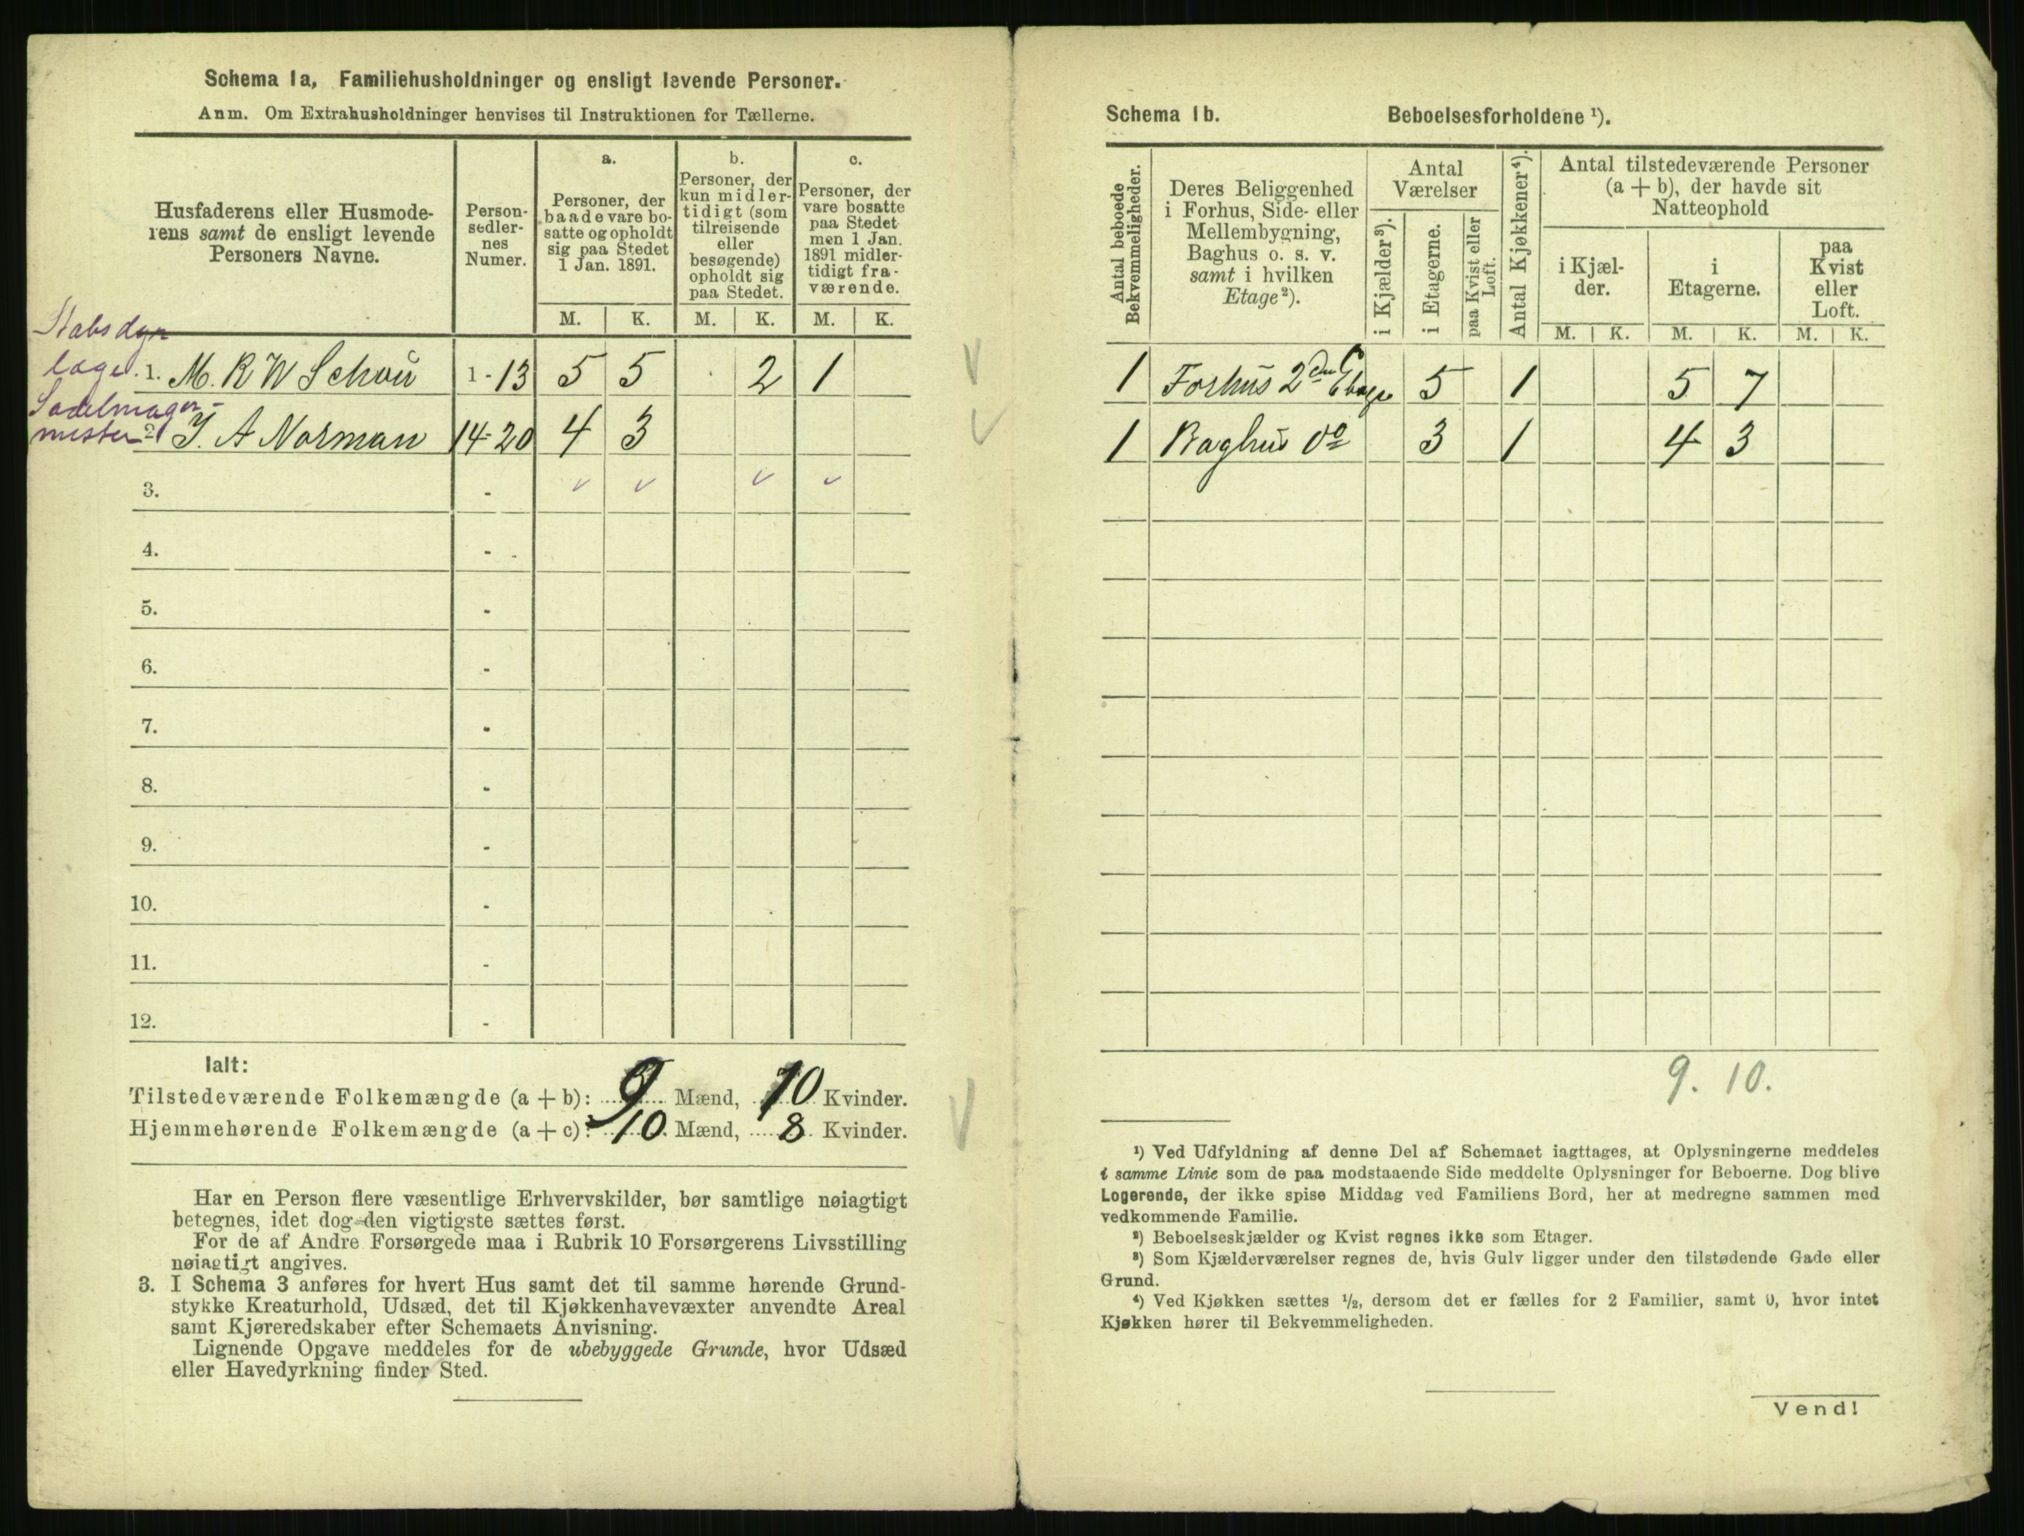 Schema 1a, Familiehusholdninger og ensligt levende Personer.
Anm. Om Extrahusholdninger henvises til Instruktionen for Tællerne.
Husfaderens eller Husmode-
rens samt de ensligt levende
Personers Navne.
Person-
sedler-
nes
Numer.
a.
Personer, der
baade vare bo-
satte og opholdt
sig paa Stedet
1 Jan. 1891.
b.
Personer, der
kun midler-
tidigt (som
tilreisende
eller
besøgende)
opholdt sig
paa Stedet.
c.
Personer, der
vare bosatte
paa Stedet
men 1 Jan.
1891 midler-
tidigt fra-
værende.
M. K. M. K. M. K.
Stabsdyr
læge 1. M. R W Schou 1 - 13 5 5 2 1
Sadelmager-
mester 2. J. A Norman 14-20 4 3
3. -
4. -
5. -
6. -
7. -
8. -
9. -
10. -
11. -
12. -
Ialt:
Tilstedeværende Folkemængde (a + b): 9 Mænd, 10 Kvinder.
Hjemmehørende Folkemængde (a + c): 10 Mænd, 8 Kvinder.
Har en Person flere væsentlige Erhvervskilder, bør samtlige nøiagtigt
betegnes, idet dog den vigtigste sættes først.
For de af Andre Forsørgede maa i Rubrik 10 Forsørgerens Livsstilling
nøiagtigt angives.
3. I Schema 3 anføres for hvert Hus samt det til samme hørende Grund-
stykke Kreaturhold, Udsæd, det til Kjøkkenhavevæxter anvendte Areal
samt Kjøreredskaber efter Schemaets Anvisning.
Lignende Opgave meddeles for de ubebyggede Grunde, hvor Udsæd
eller Havedyrkning finder Sted.
Schema 1b. Beboelsesforholdene ¹).
Antal beboede
Bekvemmeligheder.
Deres Beliggenhed
i Forhus, Side- eller
Mellembygning,
Baghus o. s. v.
samt i hvilken
Etage ²).
Antal
Værelser
i Kjælder ³).
i Etagerne.
paa Kvist eller
Loft.
Antal Kjøkkener ⁴).
Antal tilstedeværende Personer
(a + b), der havde sit
Natteophold
i Kjæl-
der.
i
Etagerne.
paa
Kvist
eller
Loft.
M. K. M. K. M. K.
1 Forhus 2den Etage 5 1 5 7
1 Baghus do 3 1 4 3
9. 10.
¹) Ved Udfyldning af denne Del af Schemaet iagttages, at Oplysningerne meddeles
i samme Linie som de paa modstaaende Side meddelte Oplysninger for Beboerne. Dog blive
Logerende, der ikke spise Middag ved Familiens Bord, her at medregne sammen med
vedkommende Familie.
²) Beboelseskjælder og Kvist regnes ikke som Etager.
³) Som Kjælderværelser regnes de, hvis Gulv ligger under den tilstødende Gade eller
Grund.
⁴) Ved Kjøkken sættes ½, dersom det er fælles for 2 Familier, samt 0, hvor intet
Kjøkken hører til Bekvemmeligheden.
Vend!